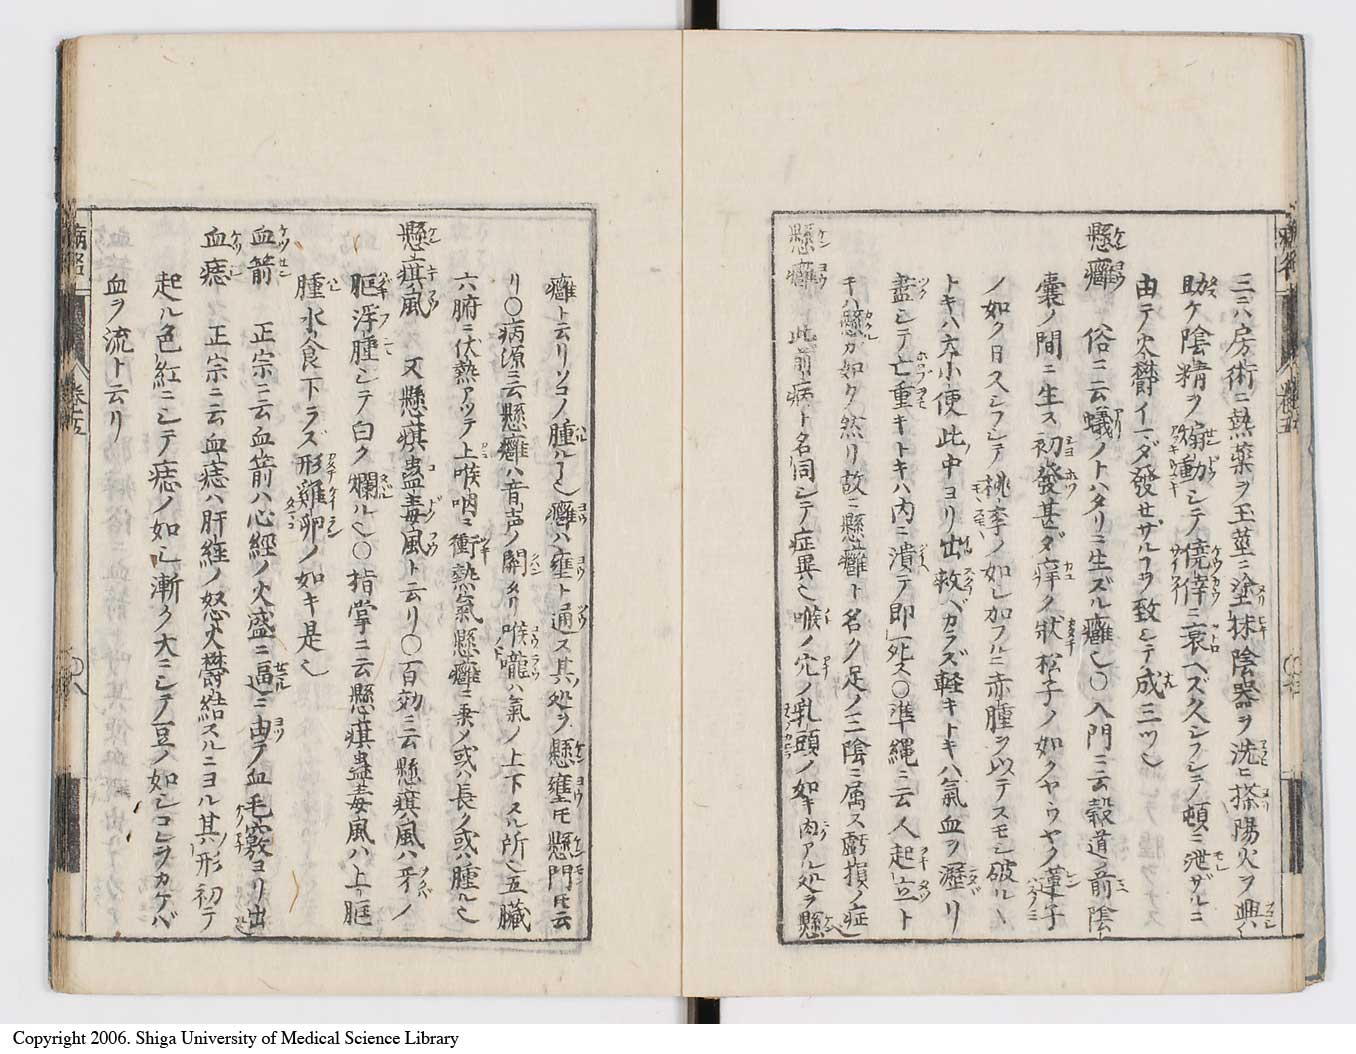 三ニハ房術ニ熱薬ヲ玉莖ニ塗抹陰器ヲ洗ヒ搽陽火ヲ興
助ケ陰精ヲ煽動シテ僥倖ニ衰ヘズ久シフシテ頓ニ泄ザルニ
由テ火欝イマダ發せザルヲ致シテ成三ツ也
懸癰 俗ニ云蟻ノトハタリニ生ズル癰也〇入門ニ云穀道ノ前陰
嚢ノ間ニ生ス初發甚ダ痒ク状松子ノ如クヤウヤク蓮子
ノ如ク日久シフシテ桃李ノ如シ加フルニ赤腫ヲ以テスモシ破ルヽ
トキハ大小便此中ヨリ出救ベカラズ軽キトキハ氣血ヲ瀝リ
盡シテ亡重キトキハ内ニ潰テ即死ス〇準縄ニ云人起立ト
キハ懸ガ如ク然リ故ニ懸癰ト名ク足ノ三陰ニ属ス虧損ノ症
懸癰 此前ノ病ト名同シテ症異也喉ノ穴ノ乳頭ノ如キ肉アル処ヲ懸
癰ト云リソコノ腫ル也癰ハ壅ト通ス其処ヲ懸壅トモ懸門トモ云
リ〇病源ニ云懸癰ハ音声ノ關タリ喉嚨ハ氣ノ上下スル所也五臓
六腑ニ伏熱アツテ上喉咽ニ衝熱氣懸癰ニ乗ノ或ハ長ク或ハ腫ル也
懸痕風 又懸痕蟲毒風ト云リ〇百効ニ云懸痕風ハ牙ノ
胚浮腫シテ白ク爛ル也〇指掌ニ云懸痕蟲毒風ハ上胚
腫水食下ラズ形雞卵ノ如キ是也
血箭 正宗ニ云血箭ハ心經ノ火盛ニ逼ニ由テ血毛竅ヨリ出
血痣 正宗ニ云血痣ハ肝経ノ怒火欝結スルニヨル其形初テ
起ル色紅ニシテ痣ノ如シ漸ク大ニシテ豆ノ如シコレヲカケバ
血ヲ流ト云リ
Copyright 2006. Shiga University of Medical Science Library